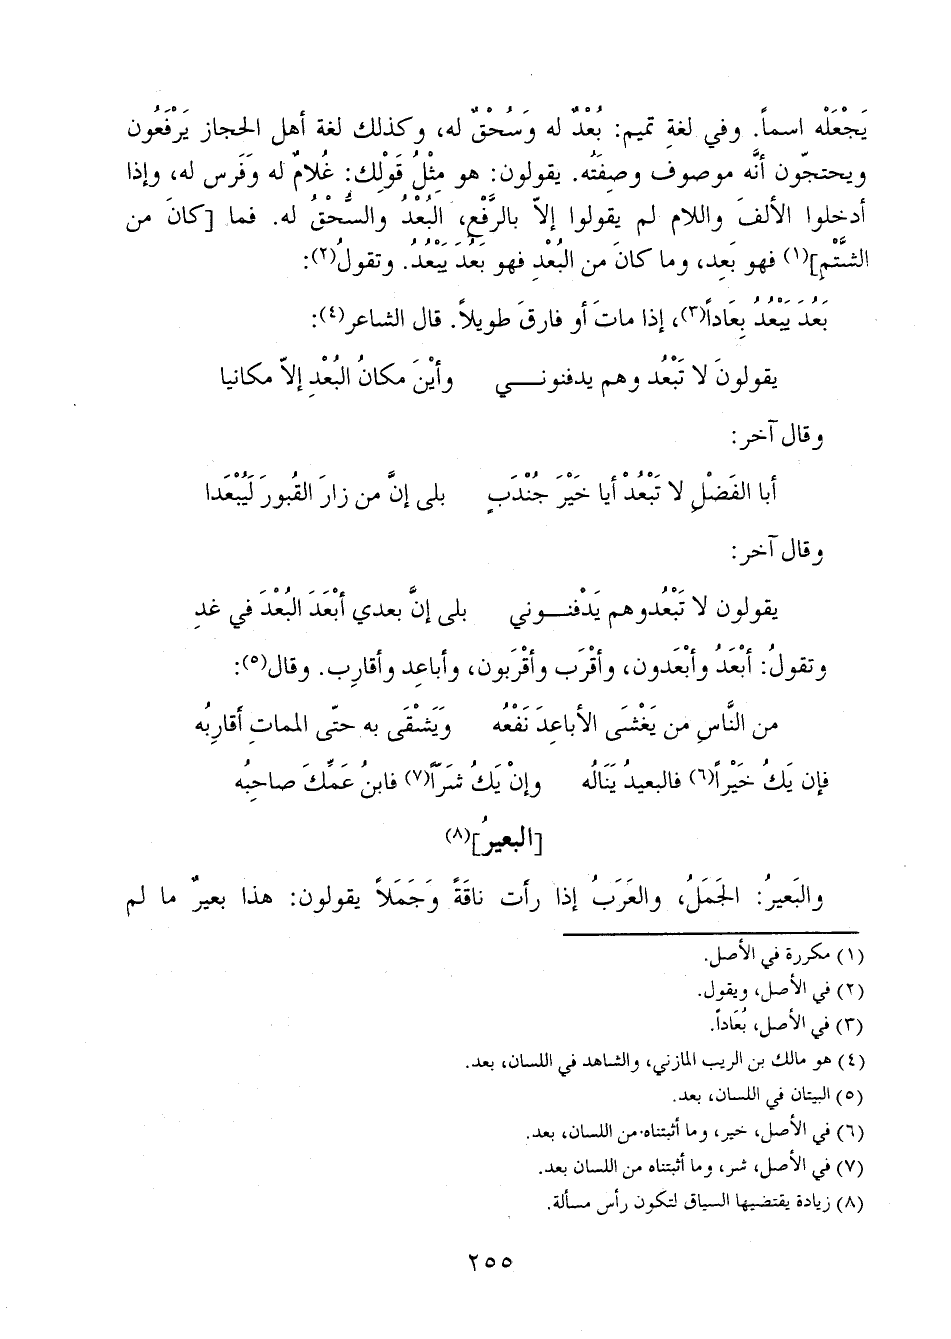 يَجْعَلْه اسماً. وفي لغةِ تميم: بُعْدٌ له وَسُحْقٌ له، وكذلك لغة أهل الحجاز يَرْفَعُون
ويحتجّون أنَّه موصوف وصِفَتُه. يقولون: هو مِثْلُ قَوْلِك: غُلامٌ له وَفَرس له، وإذا
أدخلوا الألفَ واللام لم يقولوا إلاّ بالرَّفْعِ، البُعْدُ والسُّحْقُ له. فما [كانَ من
الشَّتْمِ](١) فهو بَعِد، وما كانَ من البُعْدِ فهو بَعُدَ يَبْعُدُ. وتقولُ(٢):
بَعُدَ يَبْعُدُ بِعَاداً(٣)، إذا ماتَ أو فارقَ طويلاً. قال الشاعر(٤):
يقولونَ لا تَبْعُد وهم يدفنونـــي وأيْنَ مكانُ البُعْدِ إلاّ مكانيا
وقال آخر:
أبا الفَضْلِ لا تَبْعُدْ أيا خَيْرَ جُنْدَبٍ بلى إنَّ من زارَ القُبورَ لَيُبْعَدا
وقال آخر:
يقولون لا تَبْعُدوهم يَدْفنـــوني بلى إنَّ بعدي أبْعَدَ البُعْدَ في غدِ
وتقولُ: أبْعَدُ وأبْعَدون، وأقْرَب وأقْرَبون، وأباعِد وأقارِب. وقال(٥):
من النَّاسِ من يَغْشَى الأباعِدَ نَفْعُه وَيَشْقَى به حتّى المماتِ أقارِبُه
فإن يَكُ خَيْراً(٦) فالبعيدُ يَنَالُه وإنْ يَكُ شَرّاً(٧) فابنُ عَمِّكَ صاحبُه
[البعيرُ](٨)
والبَعيرُ: الجَمَلُ، والعَرَبُ إذا رأت ناقَةً وَجَمَلاً يقولون: هذا بعيرٌ ما لم
(١) مكررة في الأصل.
(٢) في الأصل، ويقول.
(٣) في الأصل، بُعَاداً.
(٤) هو مالك بن الريب المازني، والشاهد في اللسان، بعد.
(٥) البيتان في اللسان، بعد.
(٦) في الأصل، خير، وما أثبتناه من اللسان، بعد.
(٧) في الأصل، شر، وما أثبتناه من اللسان بعد.
(٨) زيادة يقتضيها السياق لتكون رأس مسألة.
٢٥٥